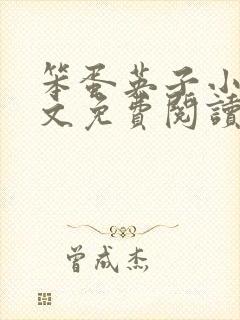 笨蛋英子小
文免費閱讀
曾成杰